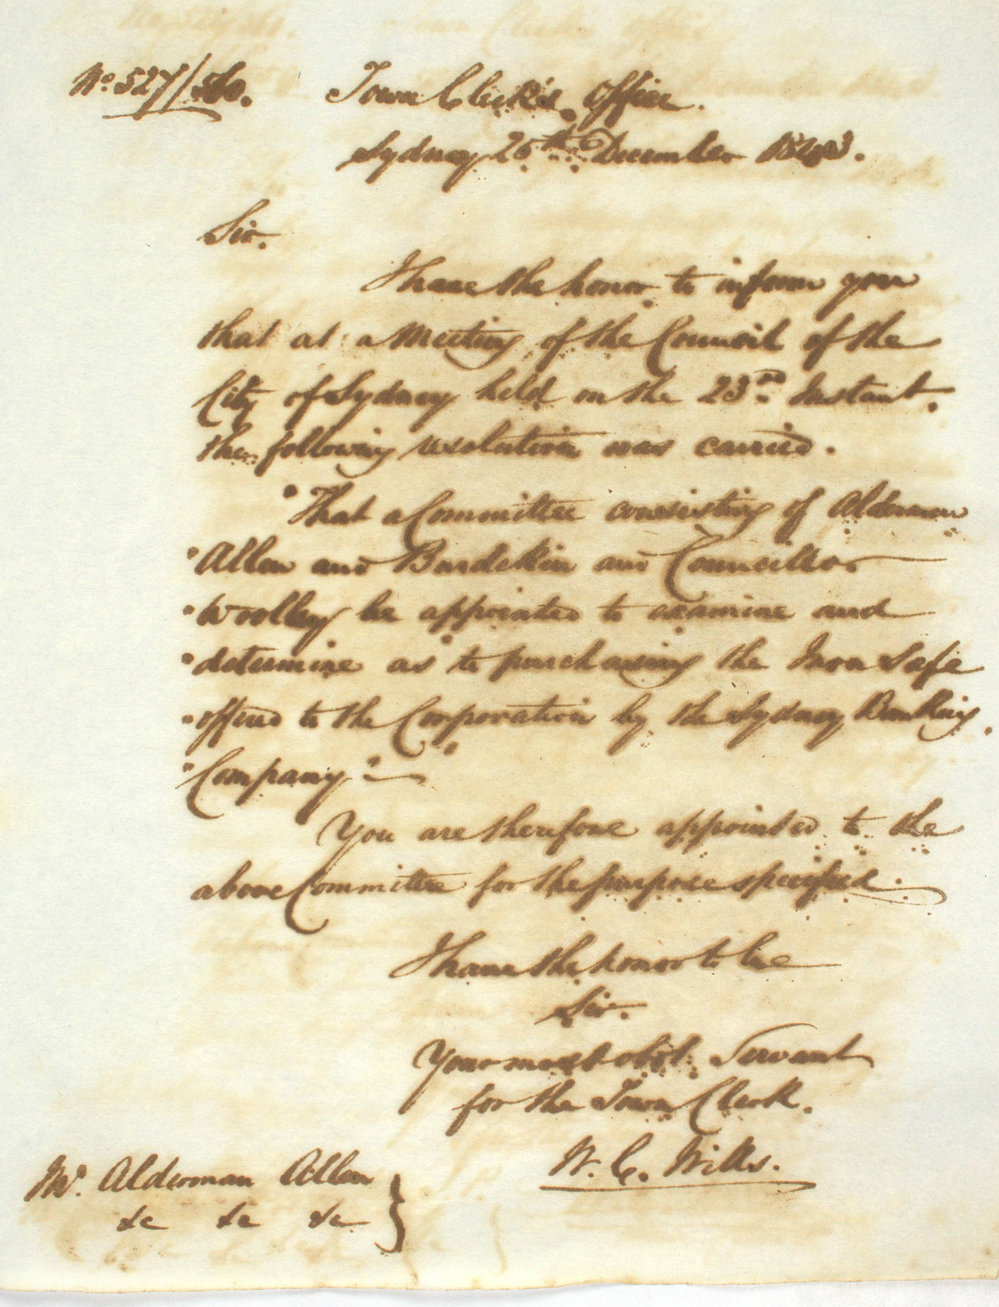 No. 527/
Town Clerk's Office.
Sydney 26th December 1843.
Sir.
I have the honor to inform you
that at a Meeting of the Council of the
City of Sydney held on the 23rd Instant.
the following resolution was carried.
"That a Committee consisting of Aldermen
"Allen and Burdekin and Councillor
"Woolley be appointed to examine and
"determine as to purchasing the Iron Safe
"offered to the Corporation by the Sydney Banking
"Company"
You are therefore appointed to the
above Committee for the purpose specified.
I have the honor to be
Sir.
Your most obdt. Servant
for the Town Clerk.
W. C. Wills.
Mr. Alderman Allen
&c &c &c